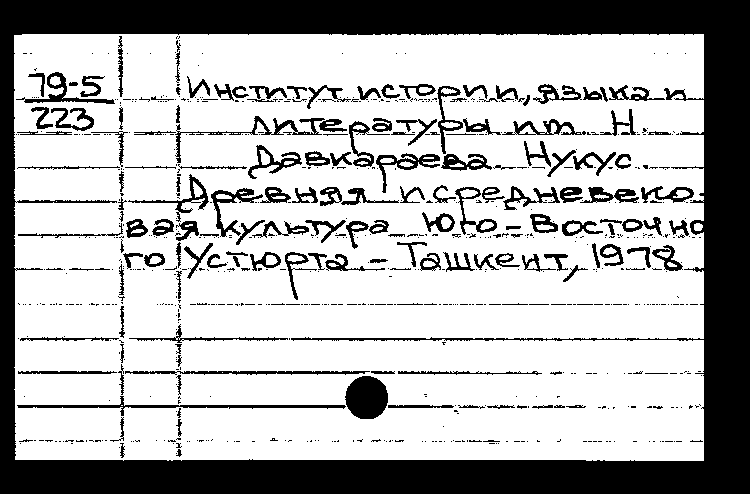 79-5
223
Институт истории, языка и
литературы им. Н.
Давкараева. Нукус.
Древняя и средневеко-
вая культура Юго-Восточно
го Устюрта. - Ташкент, 1978